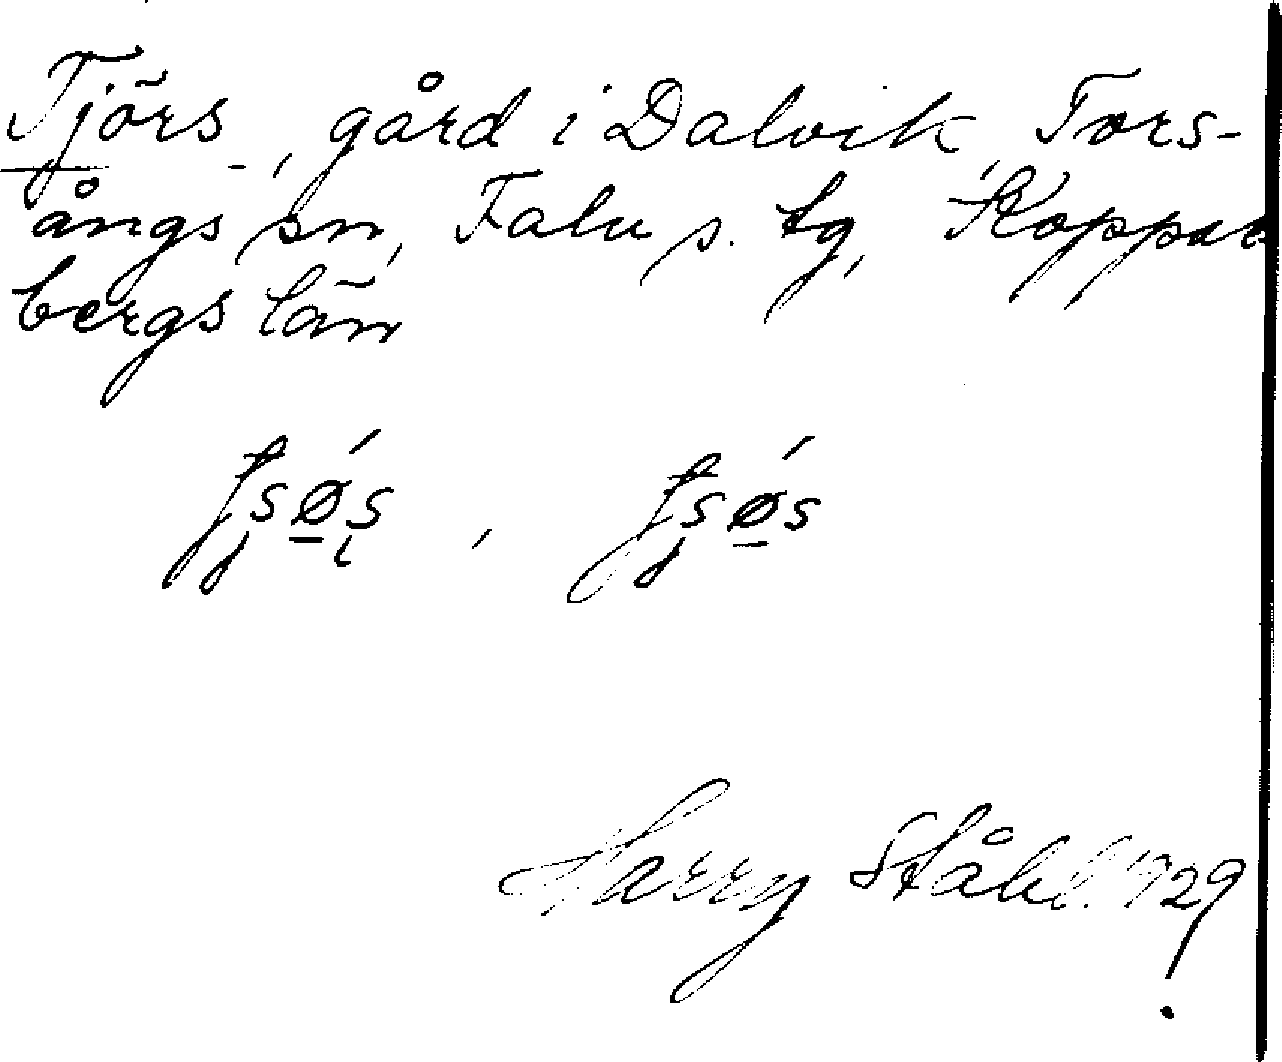 Tjörs, gård i Dalvik, Tors-
ångs sn, Falu s. tg, Koppar
bergs län
Harry Ståhl. 1929